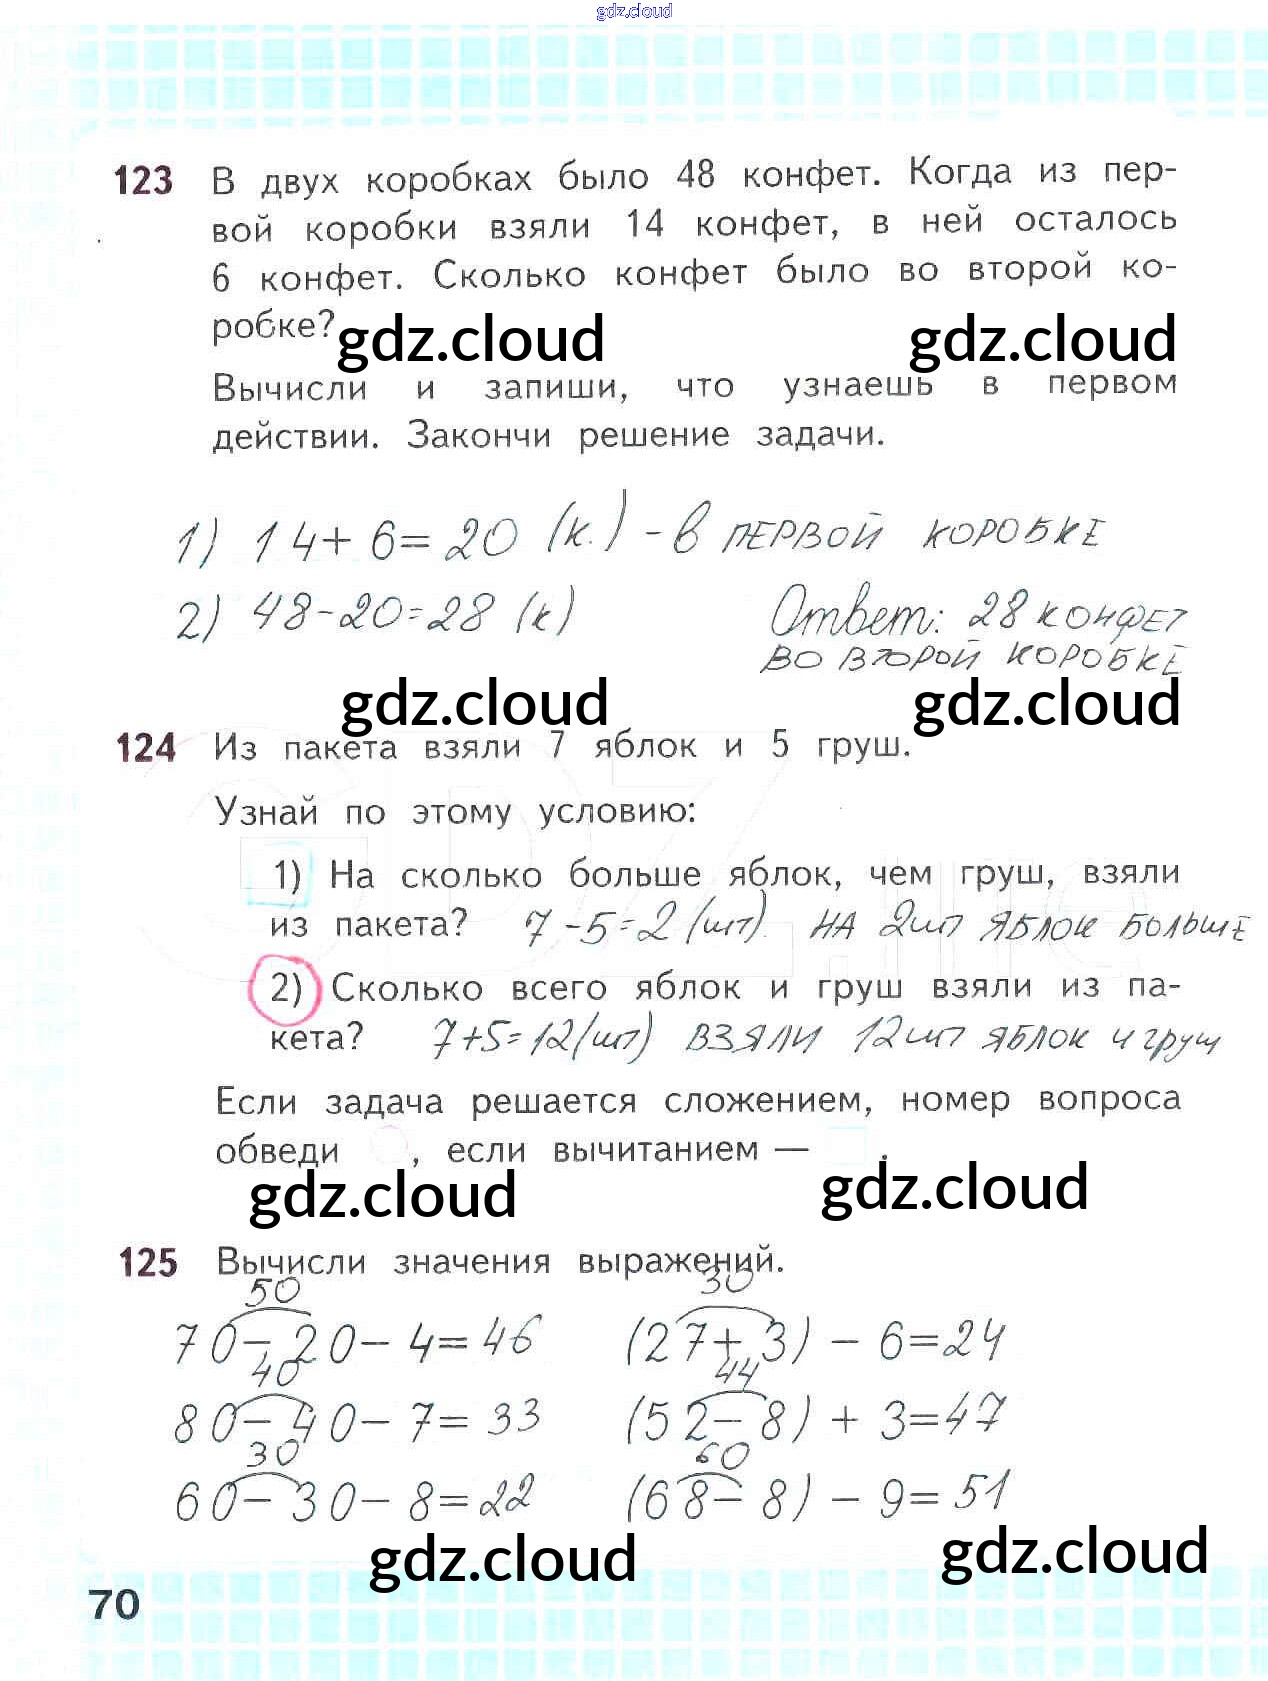 gdz.cloud
123 В двух коробках было 48 конфет. Когда из пер-
вой коробки взяли 14 конфет, в ней осталось
6 конфет. Сколько конфет было во второй ко-
робке?
gdz.cloud gdz.cloud
Вычисли и запиши, что узнаешь в первом
действии. Закончи решение задачи.
1) 14+6=20 (к.) - в ПЕРВОЙ КОРОБКЕ
2) 48-20=28 (к) Ответ: 28 КОНФЕТ
ВО ВТОРОЙ КОРОБКЕ
gdz.cloud gdz.cloud
124 Из пакета взяли 7 яблок и 5 груш.
Узнай по этому условию:
1) На сколько больше яблок, чем груш, взяли
из пакета? 7-5=2 (шт). НА 2шт ЯБЛОК БОЛЬШЕ
2) Сколько всего яблок и груш взяли из па-
кета? 7+5=12(шт) ВЗЯЛИ 12шт ЯБЛОК и груш
Если задача решается сложением, номер вопроса
обведи , если вычитанием — .
gdz.cloud gdz.cloud
125 Вычисли значения выражений.
50 30
70-20-4=46 (27+3)-6=24
40 44
80-40-7=33 (52-8)+3=47
30 60
60-30-8=22 (68-8)-9=51
gdz.cloud gdz.cloud
70